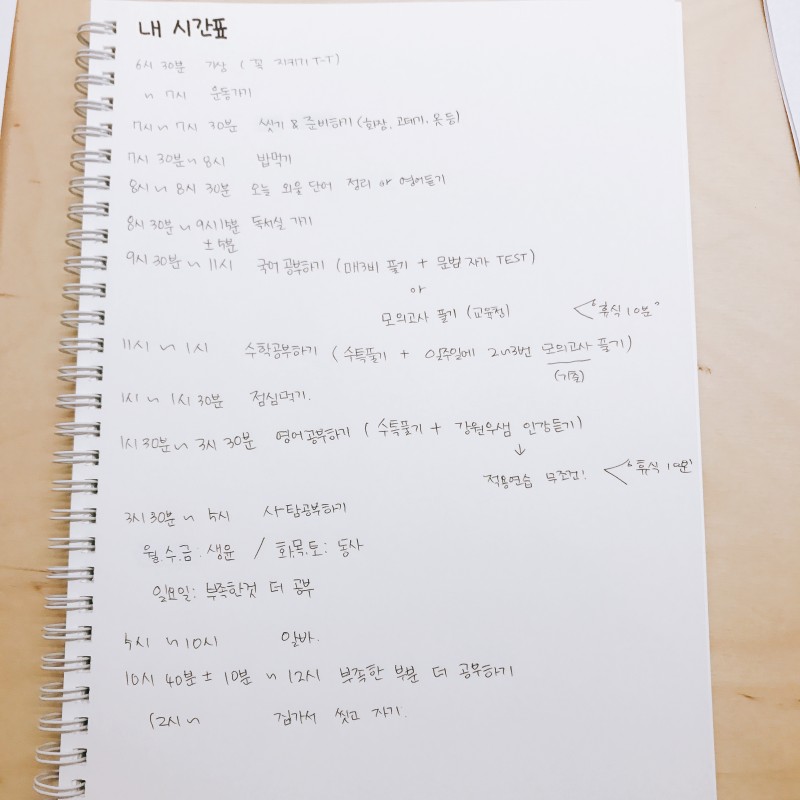 내 시간표
6시 30분 기상 ( 꼭 지키기 T-T )
~ 7시 운동가기
7시 ~ 7시 30분 씻기 & 준비하기 (화장, 고데기, 옷 등)
7시 30분 ~ 8시 밥먹기
8시 ~ 8시 30분 오늘 외울 단어 정리 or 영어듣기
8시 30분 ~ 9시 15분 독서실 가기
± 5분
9시 30분 ~ 11시 국어 공부하기 (매3비 풀기 + 문법 자가 TEST)
or
모의고사 풀기 (교육청)
"휴식 10분"
11시 ~ 1시 수학공부하기 ( 수특풀기 + 일주일에 2~3번 모의고사 풀기)
(기출)
1시 ~ 1시 30분 점심먹기.
1시 30분 ~ 3시 30분 영어공부하기 ( 수특풀기 + 강원우쌤 인강듣기)
↓
적용연습 무조건!
"휴식 10분"
3시 30분 ~ 5시 사탐공부하기
월.수.금: 생윤 / 화.목.토: 동사
일요일: 부족한것 더 공부
5시 ~ 10시 알바.
10시 40분 ± 10분 ~ 12시 부족한 부분 더 공부하기
12시 ~ 집가서 씻고 자기.